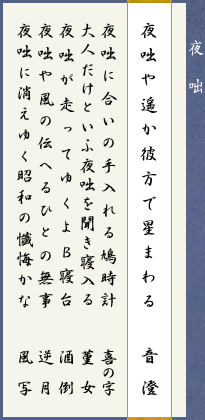 夜咄
夜咄や遥か彼方で星まわる　音澄
夜咄に合いの手入れる鳩時計　喜の字
大人だけといふ夜咄を聞き寝入る　菫女
夜咄が走ってゆくよB寝台　酒倒
夜咄や風の伝へるひとの無事　逆月
夜咄に消えゆく昭和の懺悔かな　風写